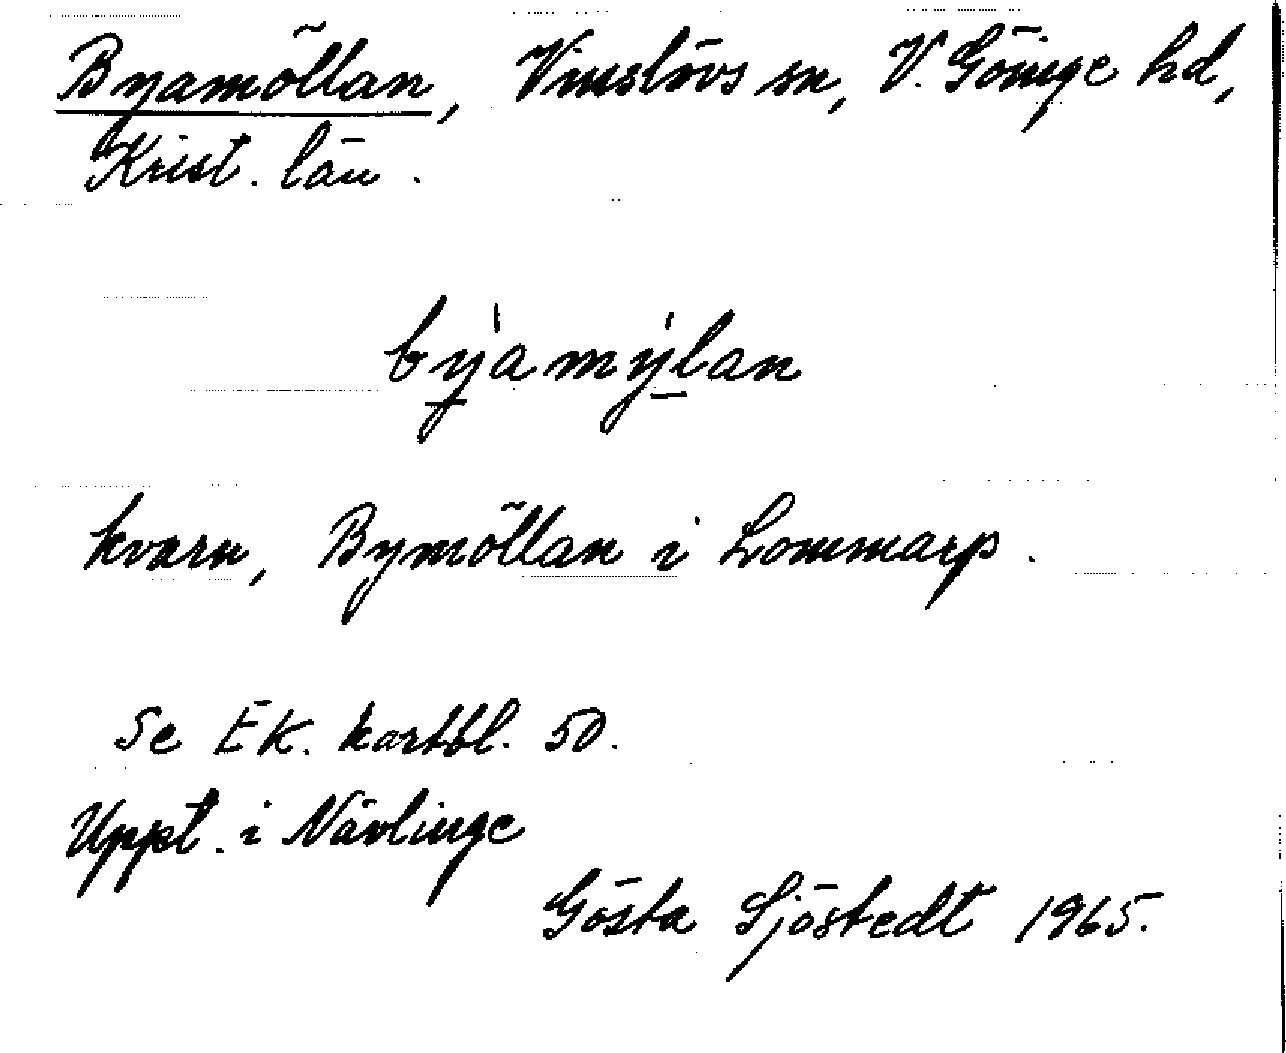 Byamöllan, Vinslövs sn, V. Göinge hd,
Krist. län.
bý̱amýḻan
kvarn, Bymöllan i Lommarp.
Se EK. kartbl. 50.
Uppt. i Nävlinge
Gösta Sjöstedt 1965.